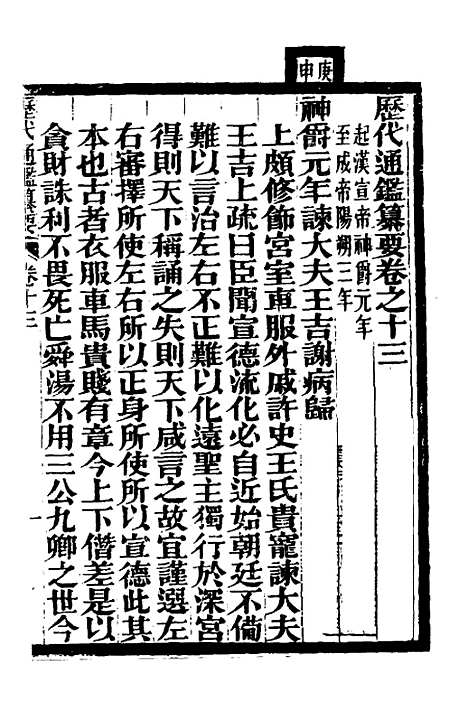 庚申
歷代通鑑纂要卷之十三
起漢宣帝神爵元年
至成帝陽朔三年
神爵元年諫大夫王吉謝病歸
上頗修飾宮室車服外戚許史王氏貴寵諫大夫
王吉上疏曰臣聞宣德流化必自近始朝廷不備
難以言治左右不正難以化遠聖主獨行於深宮
得則天下稱誦之失則天下咸言之故宜謹選左
右審擇所使左右所以正身所使所以宣德此其
本也古者衣服車馬貴賤有章今上下僭差是以
貪財誅利不畏死亡舜湯不用三公九卿之世今
歷代通鑑纂要 卷十三 一